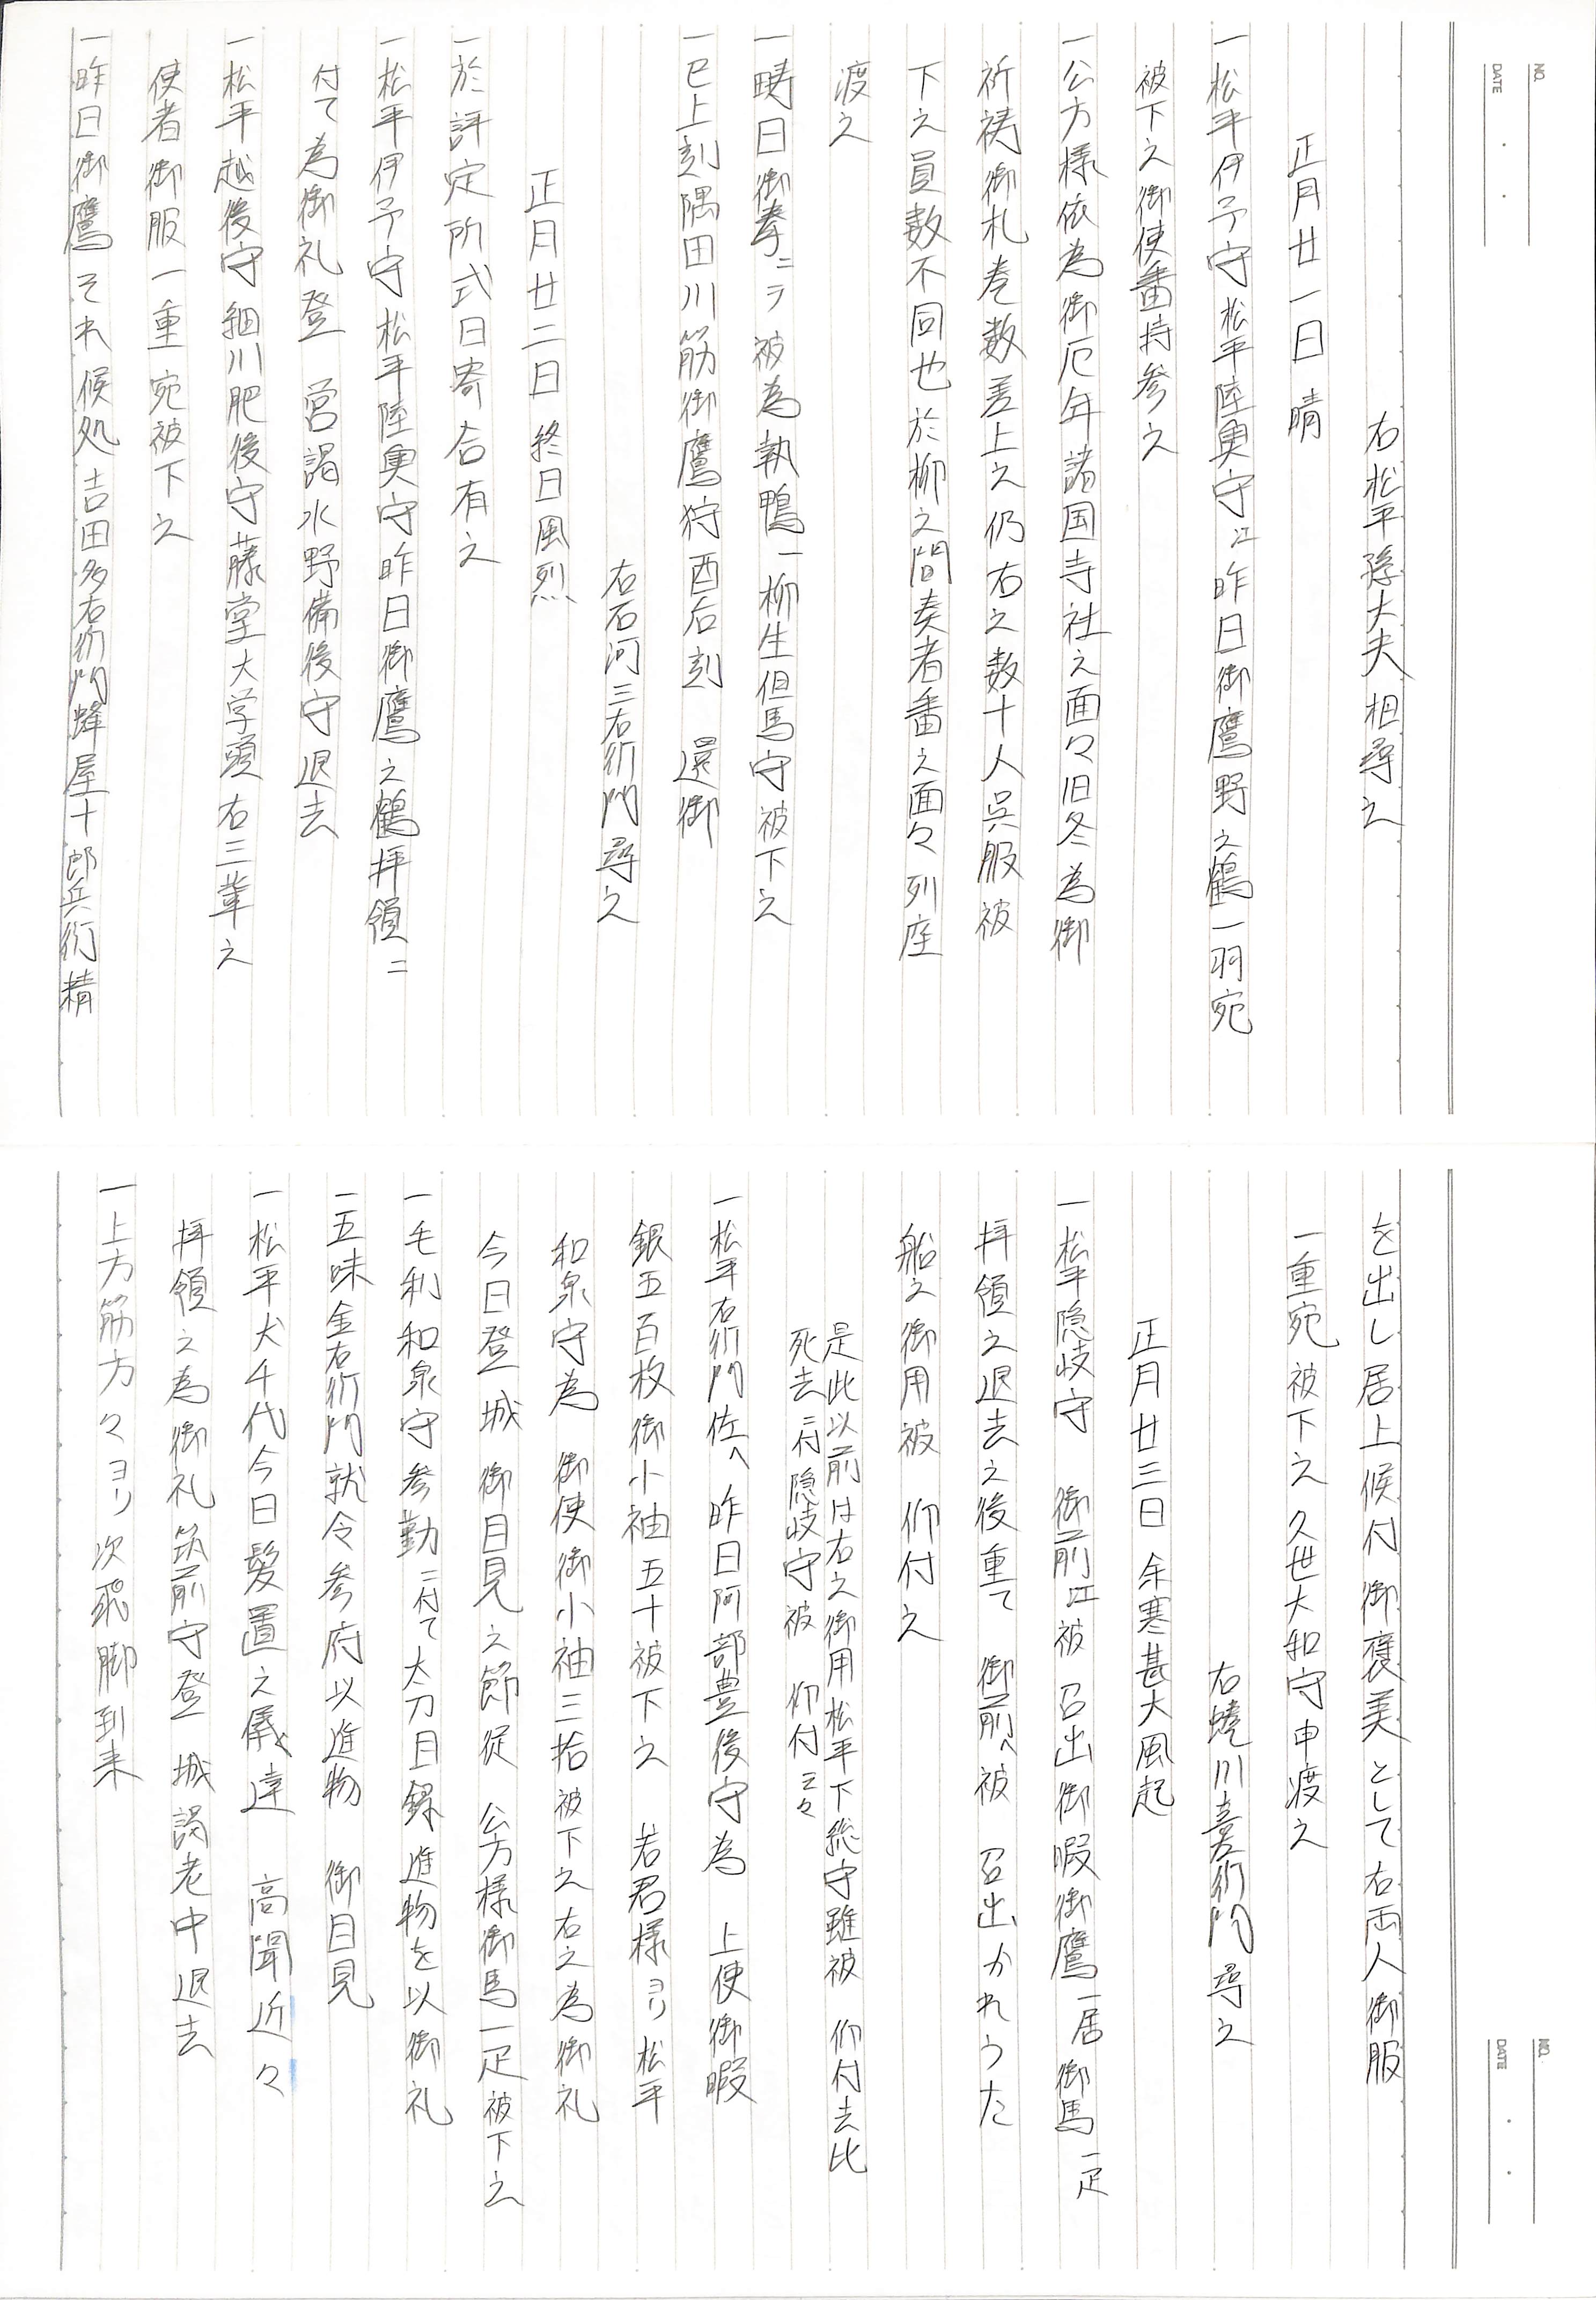 NO.
DATE
右松平隼大夫相尋之
正月廿一日 晴
一松平伊予守松平陸奥守江昨日御鷹野之鶴一羽宛
被下之御使番持参之
一公方様依為御厄年諸国寺社之面々旧冬為御
祈祷御札巻数差上之仍右之数十人呉服被
下之員数不同也於柳之間奏者番之面々列座
渡之
一疇日御拳ニテ被為執鴨一柳生但馬守被下之
一巳上刻隅田川筋御鷹狩酉后刻 還御
右石河三右衛門尋之
正月廿二日 終日風烈
一於評定所式日寄合有之
一松平伊予守松平陸奥守昨日御鷹之鶴拝領ニ
付て為御礼登 営謁水野備後守退去
一松平越後守細川肥後守藤堂大学頭右三輩之
使者御服一重宛被下之
一昨日御鷹それ候処吉田多右衛門蜂屋十郎兵衛精
NO.
DATE
を出し居上候付御褒美として右両人御服
一重宛被下之久世大和守申渡之
右蜷川喜左衛門尋之
正月廿三日 余寒甚大風起
一松平隠岐守 御前江被 召出御暇御鷹一居御馬一疋
拝領之退去之後重て 御前へ被 召出かれうた
船之御用被 仰付之
是此以前は右之御用松平下総守雖被 仰付去比
死去ニ付隠岐守被 仰付云々
一松平右衛門佐へ昨日阿部豊後守為 上使御暇
銀五百枚御小袖五十被下之 若君様ヨリ松平
和泉守為 御使御小袖三拾被下之右之為御礼
今日登 城 御目見之節従 公方様御馬一疋被下之
一毛利和泉守参勤ニ付て太刀目録進物を以御礼
一五味金右衛門就令参府以進物 御目見
一松平犬千代今日髪置之儀達 高聞近々
拝領之為御礼筑前守登 城謁老中退去
一上方筋方々ヨリ次飛脚到来